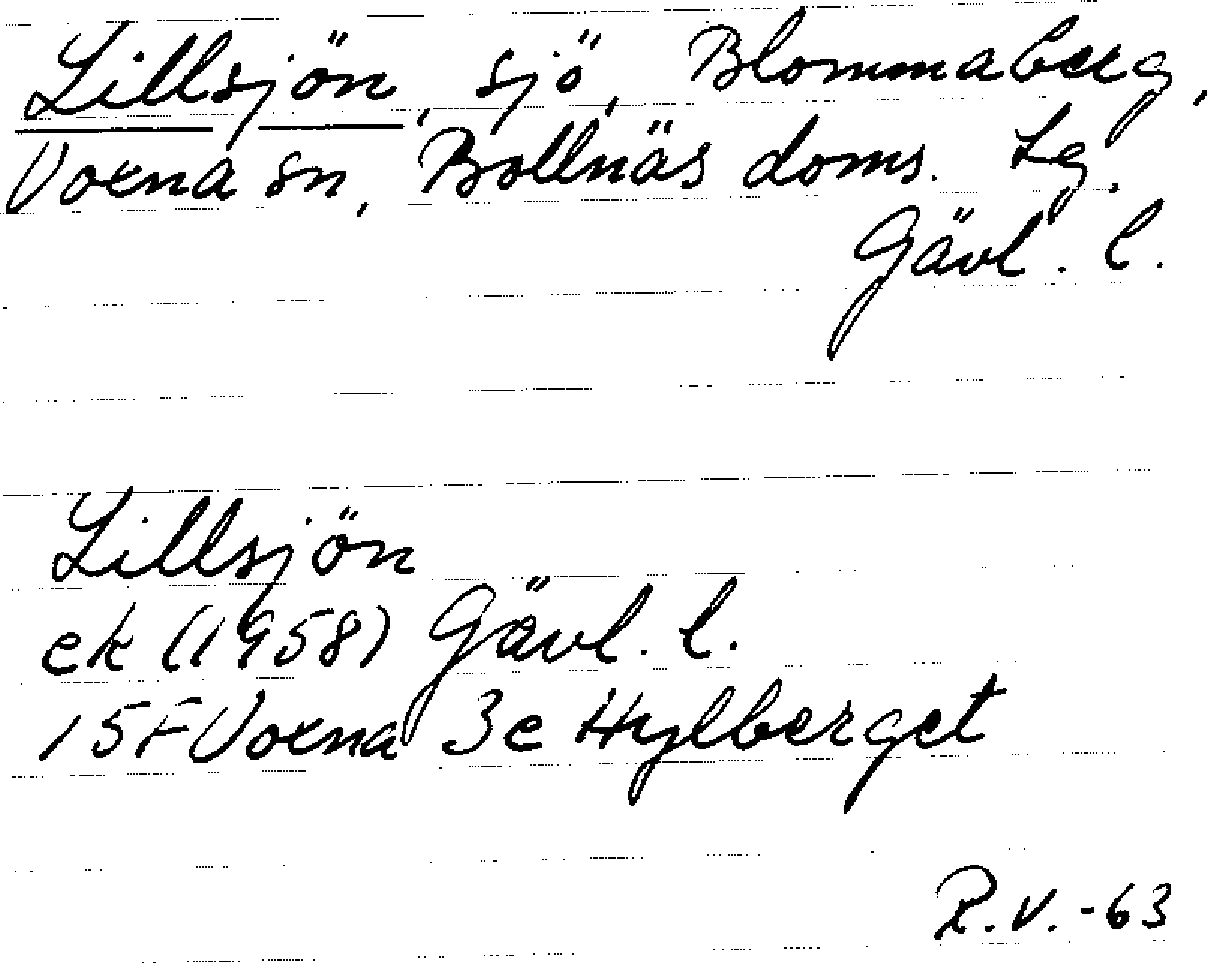 Lillsjön, sjö, Blommaberg,
Voxna sn, Bollnäs doms. Lg.
Gävl. l.
Lillsjön
ek (1958) Gävl. l.
15F Voxna 3e Hylberget
R.V.-63